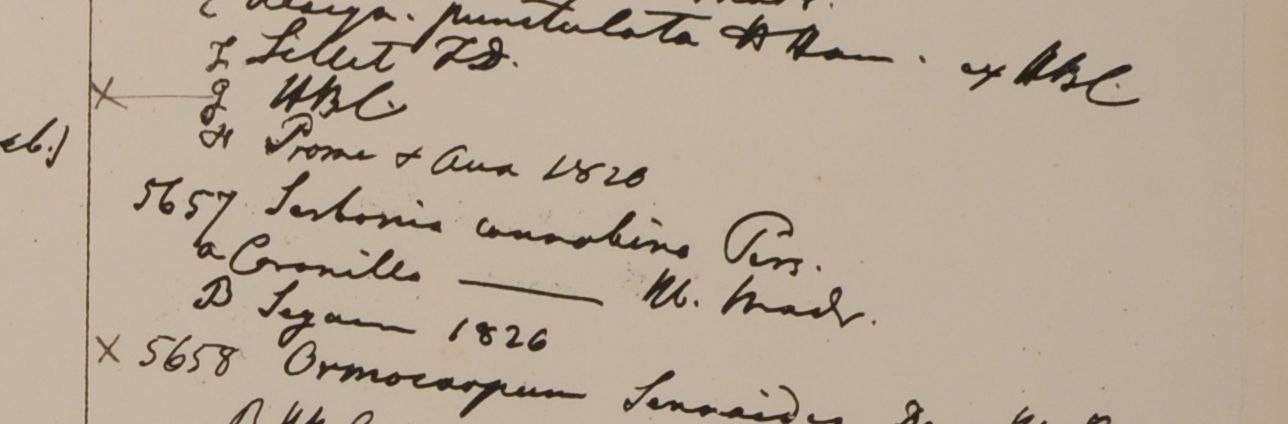 design. punctulata H Ham. ex HBC.
F Sillet FD.
eb.) × g HBC.
H Prome & Ava 1820
5657 Sesbania cannabina Pers.
a Coronilla —— Hb. Madr.
B Segaen 1826
× 5658 Ormocarpum Sennoides